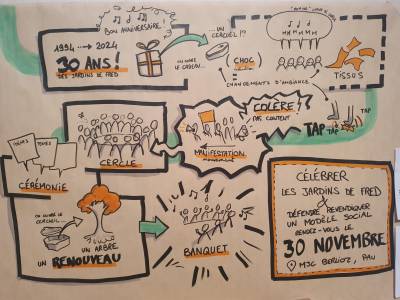 BON ANNIVERSAIRE !
1994 ...→ 2024
30 ANS !
DES JARDINS DE FRED
ON OUVRE
LE CADEAU...
... UN
CERCUEIL !?
CHOC
CHANGEMENTS D'AMBIANCE
TISSUS
COLÈRE !?
PAS CONTENT
TAP
TAP
TAP
TAP
MANIFESTATION
CERCLE
CÉRÉMONIE
ON OUVRE
LE CERCUEIL...
UN ARBRE
UN RENOUVEAU
BANQUET
CÉLÉBRER
LES JARDINS DE FRED
&
DÉFENDRE REVENDIQUER
UN MODÈLE SOCIAL
RENDEZ-VOUS LE
30 NOVEMBRE
MJC BERLIOZ, PAU